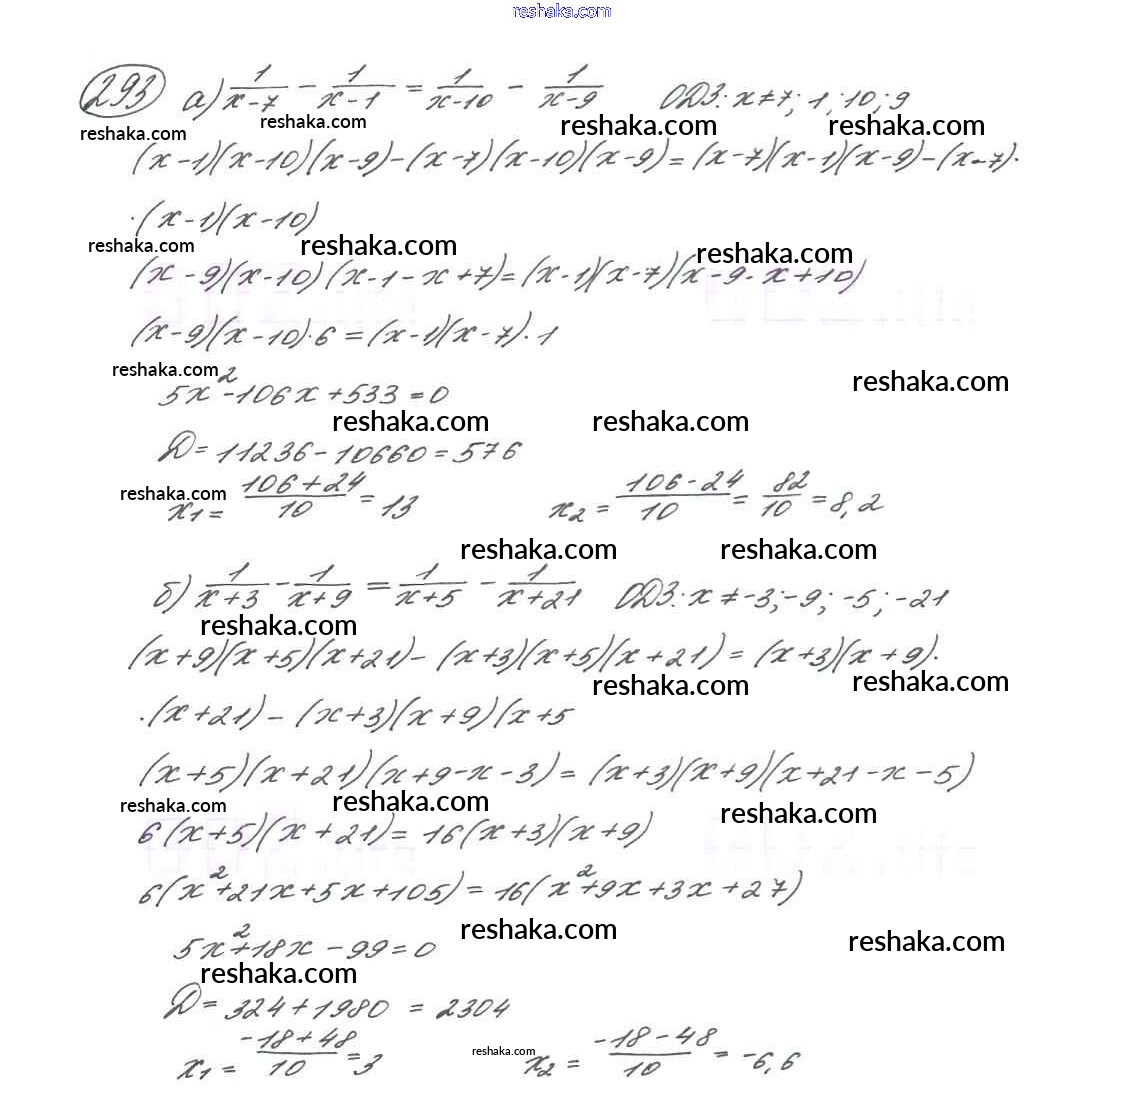 reshaka.com
293 а) 1/(x-7) - 1/(x-1) = 1/(x-10) - 1/(x-9) ОДЗ: x≠7; 1; 10; 9
reshaka.com reshaka.com reshaka.com reshaka.com
(x-1)(x-10)(x-9)-(x-7)(x-10)(x-9)=(x-7)(x-1)(x-9)-(x-7)·
·(x-1)(x-10)
reshaka.com reshaka.com reshaka.com
(x-9)(x-10)(x-1-x+7)=(x-1)(x-7)(x-9-x+10)
(x-9)(x-10)·6=(x-1)(x-7)·1
reshaka.com reshaka.com
5x²-106x+533=0
reshaka.com reshaka.com
D=11236-10660=576
reshaka.com
x₁= (106+24)/10 = 13 x₂= (106-24)/10 = 82/10 = 8,2
reshaka.com reshaka.com
б) 1/(x+3) - 1/(x+9) = 1/(x+5) - 1/(x+21) ОДЗ: x≠-3; -9; -5; -21
reshaka.com
(x+9)(x+5)(x+21)-(x+3)(x+5)(x+21)=(x+3)(x+9)·
reshaka.com reshaka.com
·(x+21)-(x+3)(x+9)(x+5
(x+5)(x+21)(x+9-x-3)=(x+3)(x+9)(x+21-x-5)
reshaka.com reshaka.com reshaka.com
6(x+5)(x+21)=16(x+3)(x+9)
6(x²+21x+5x+105)=16(x²+9x+3x+27)
reshaka.com reshaka.com
5x²+18x-99=0
reshaka.com
D=324+1980=2304
x₁= (-18+48)/10 = 3 x₂= (-18-48)/10 = -6,6
reshaka.com